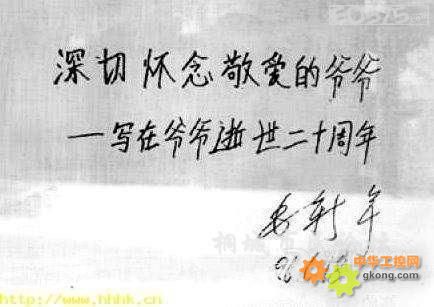 深切怀念敬爱的爷爷
—写在爷爷逝世二十周年
新年
中华工控网
gkong.com
http://www.hhhk.cn